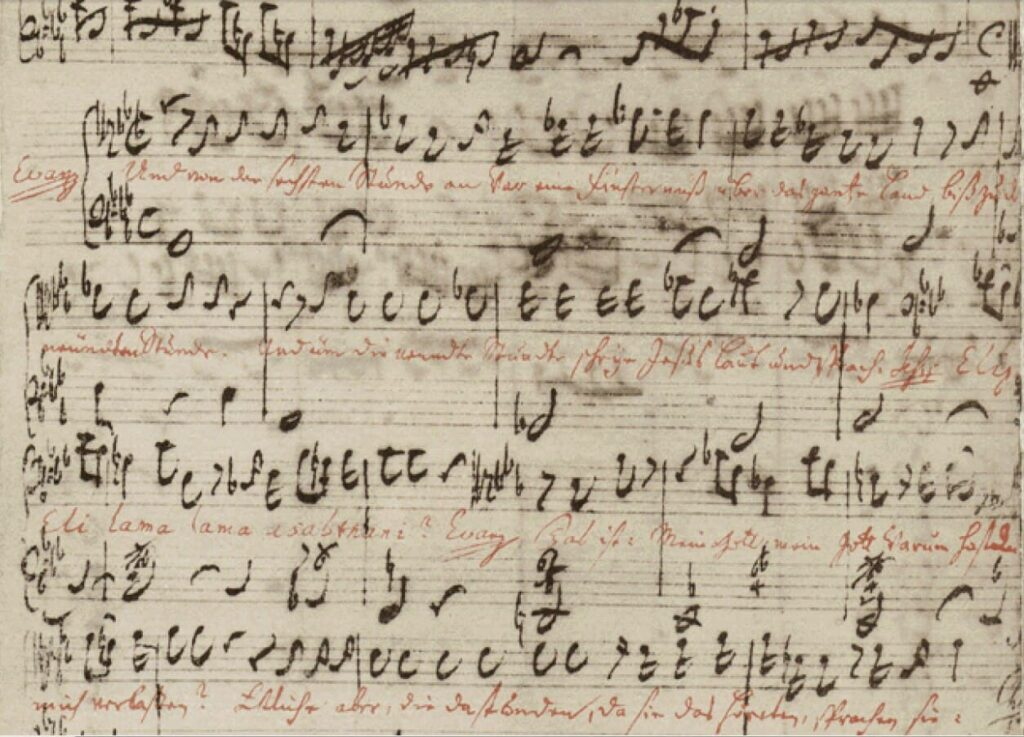 Evang Und von der sechsten Stunde an war eine Finsterniß über das gantze Land biß zu d
neundten Stunde. Und um die neundte Stunde schrye Jesus laut und sprach: Eli,
Eli lama lama asabthani? Evang Das ist: Mein Gott, mein Gott warum hastdu
mich verlassen? Etliche aber, die da stunden, da sie das höreten, sprachen sie: